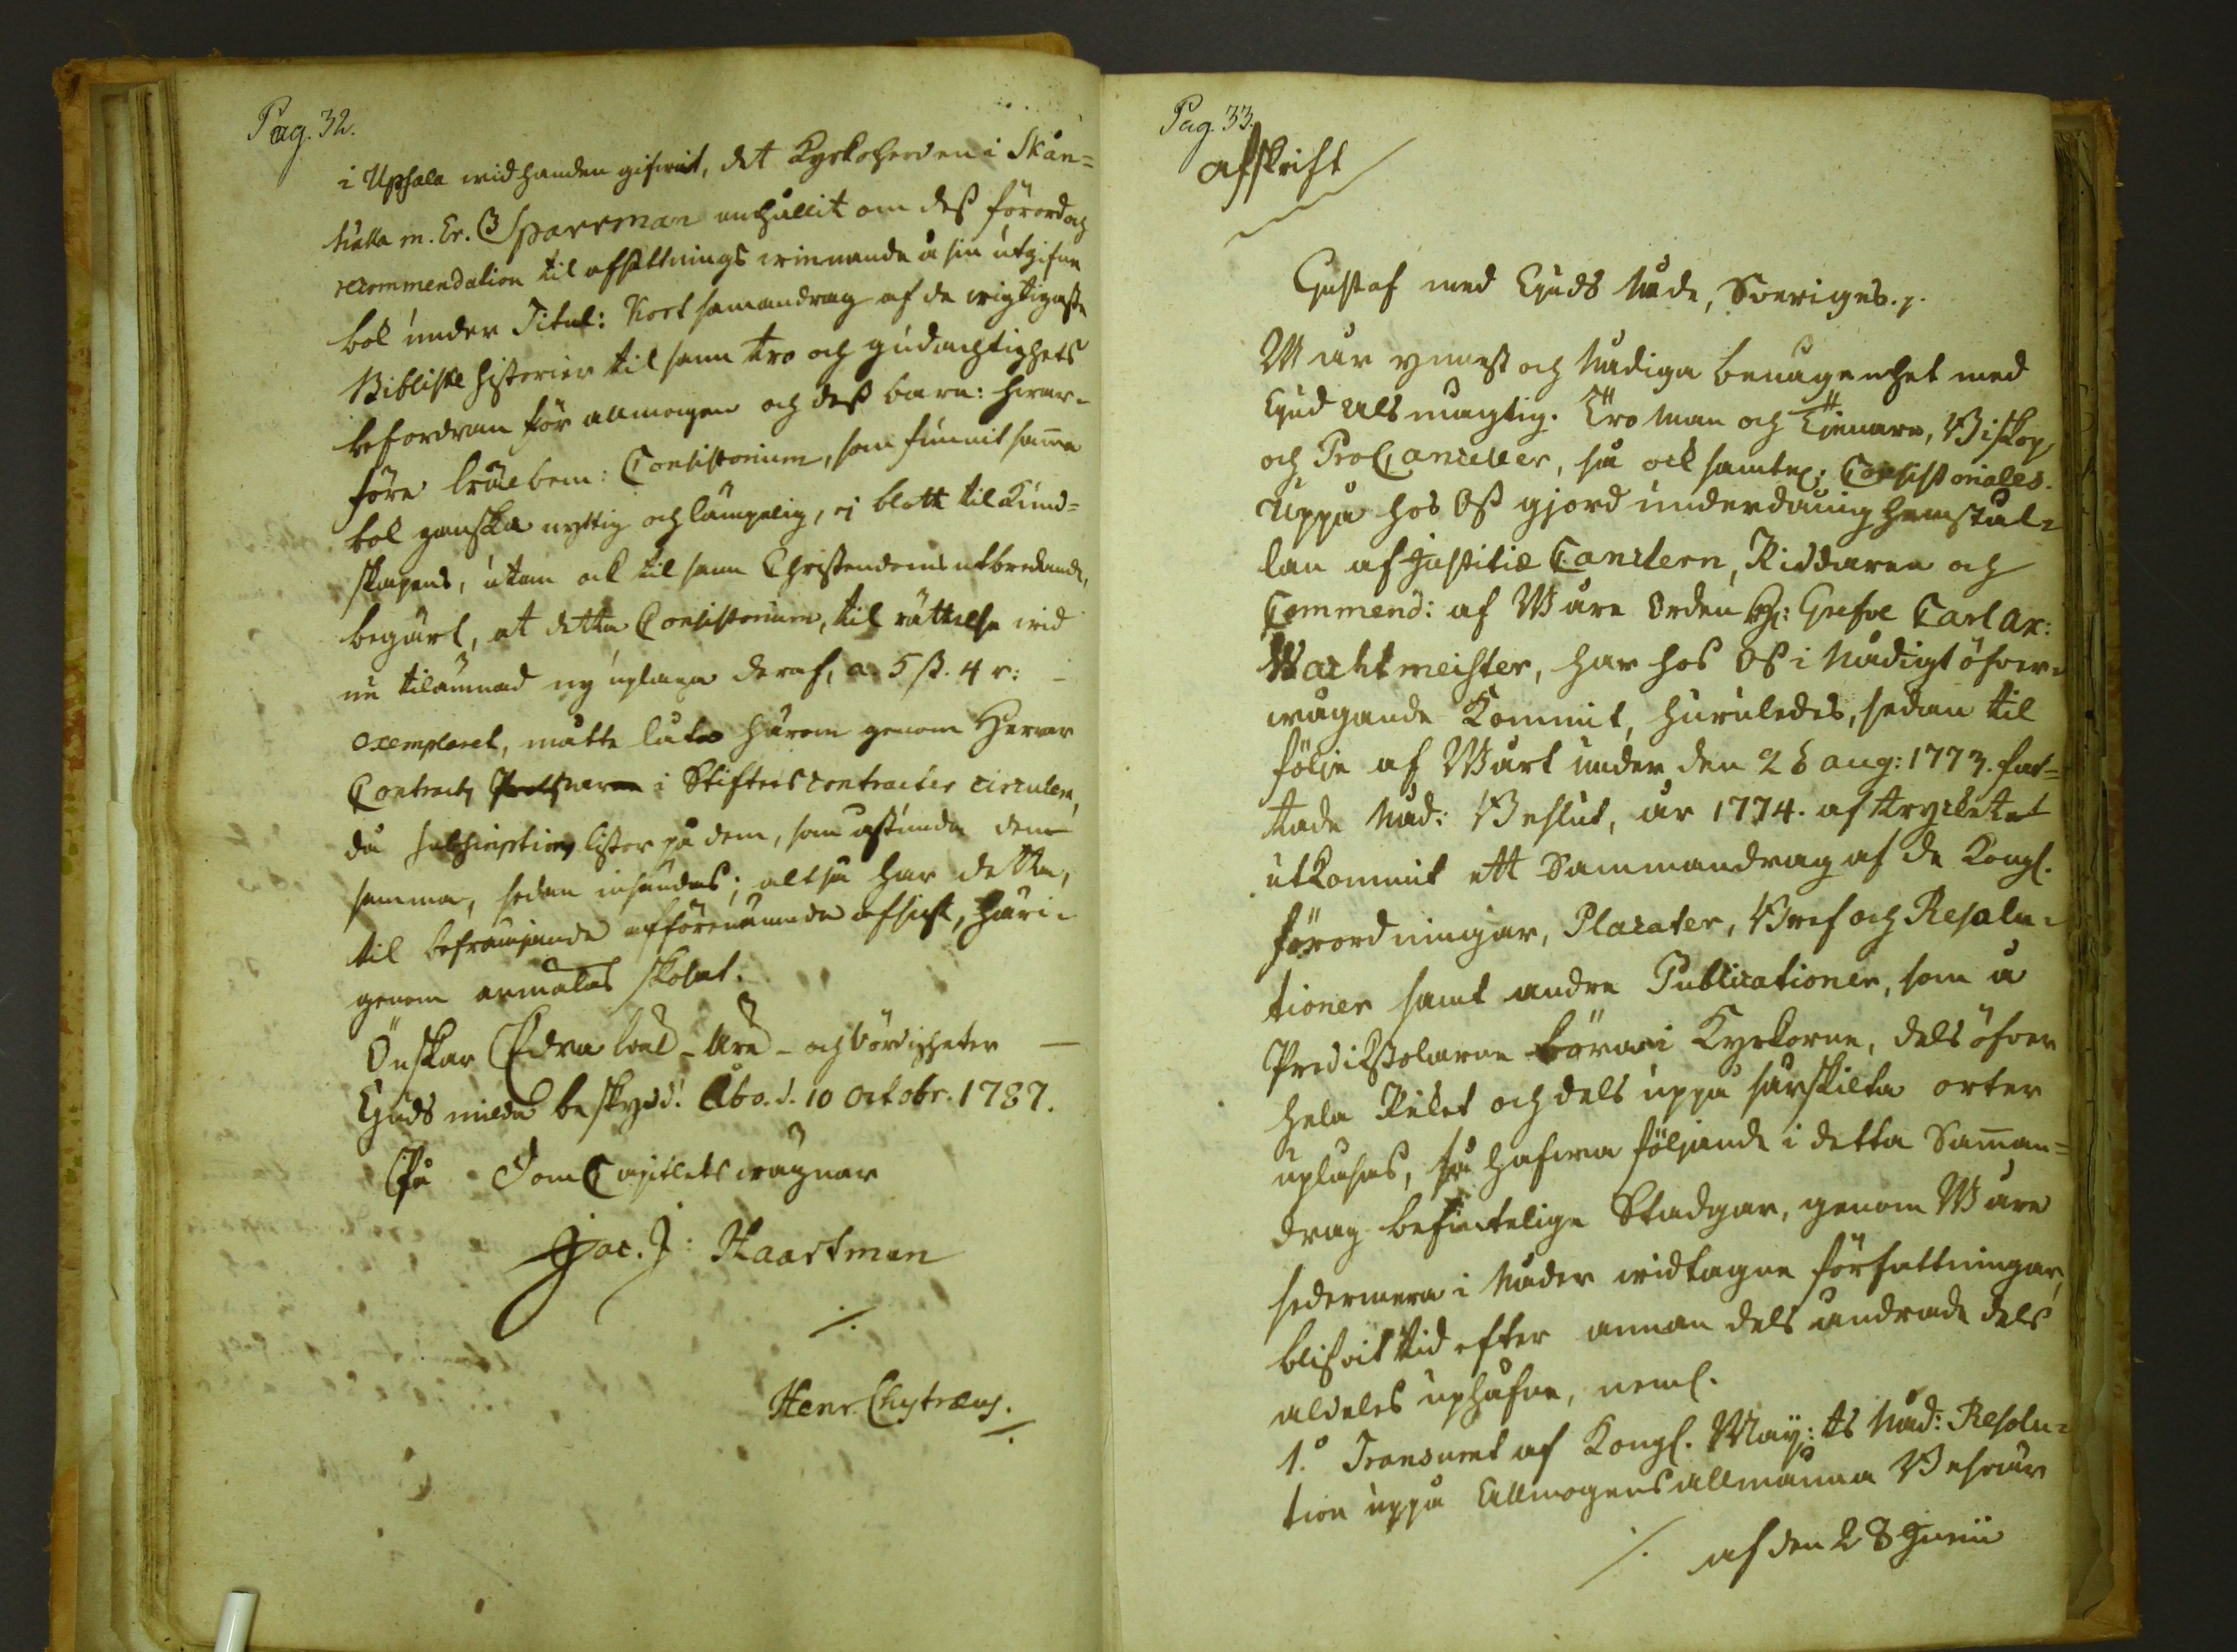 Pag. 32.
i Upsala widhanden gifwit, det Kyrkoherden i Skån=
tuna m. Er. Sparrman anhållit om deß förord och
recommendation til afsättnings winnande å sin utgifne
bok under Titul: Kort samandrag af de wigtigaste
Bibliske historier til sann tro och gudachtighets
befordran för allmogen och deß barn: hwar-
före bem: Consistorium, som funnit samma
bok ganska nyttig och lämpelig, ej blott til kund=
skapens, utan ock til sann Christendoms utbredande,
begärt, at detta Consistorium, til rättelse wid
en tilämnad ny uplaga deraf, a 5 ß. 4 r:
exemplaret, måtte låta härom genom Herrar
Contracts Prostarne i Stiftets contracter circulera,
då subscriptions listor på dem, som åstunda den
samma, sedan insändas; altså har detta,
til befrämjande af förenämnde afsigt, häri-
genom anmälas skolat.
Önskar Edra wäl- äre- och wördigheter
Guds milda beskydd. Åbo d. 10 Octobr. 1787.
På DomCapitlets wägnar
Jac. J: Haartman
./.
Henr. Chytræus.
./.
Pag. 33.
Afskrift
Gustaf med Guds Nåde, Sveriges. p.
Wår ynnest och Nådiga benägenhet med
Gud Alsmägtig. Tro Man och Tjenare, Biskop
och ProCanceller, så ock samtel: Consistoriales.
Uppå hos Oß gjord underdånig hemstäl-
lan af Justitiæ Canclern, Riddaren och
Commend: af Wåre Orden Hr: Grefve Carl Ax:
Wachtmeister, har hos Oß i Nådigt öfver-
wägande kommit, huruledes, sedan til
följe af Wårt under den 26 aug: 1773. fat=
tade Nåd: Beslut, år 1774. af trycket
utkommit ett Sammandrag af de Kongl.
förordningar, Placater, Bref och Resolu-
tioner samt andre Publicationer, som å
Predikstolarne böra i Kyrkorne, dels öfver
hela Riket och dels uppå särskilta orter
upläsas, så hafwa följande i detta Samman=
drag befintelige Stadgar, genom Wåre
sedermera i Nåder widtagne författningar,
blifvit tid efter annan dels ändrade dels
aldeles uphäfne, neml.
1.o Transumt af Kongl. Maj:ts Nåd: Resolu=
tion uppå Allmogens allmänna Beswär
./. af den 28 Junii